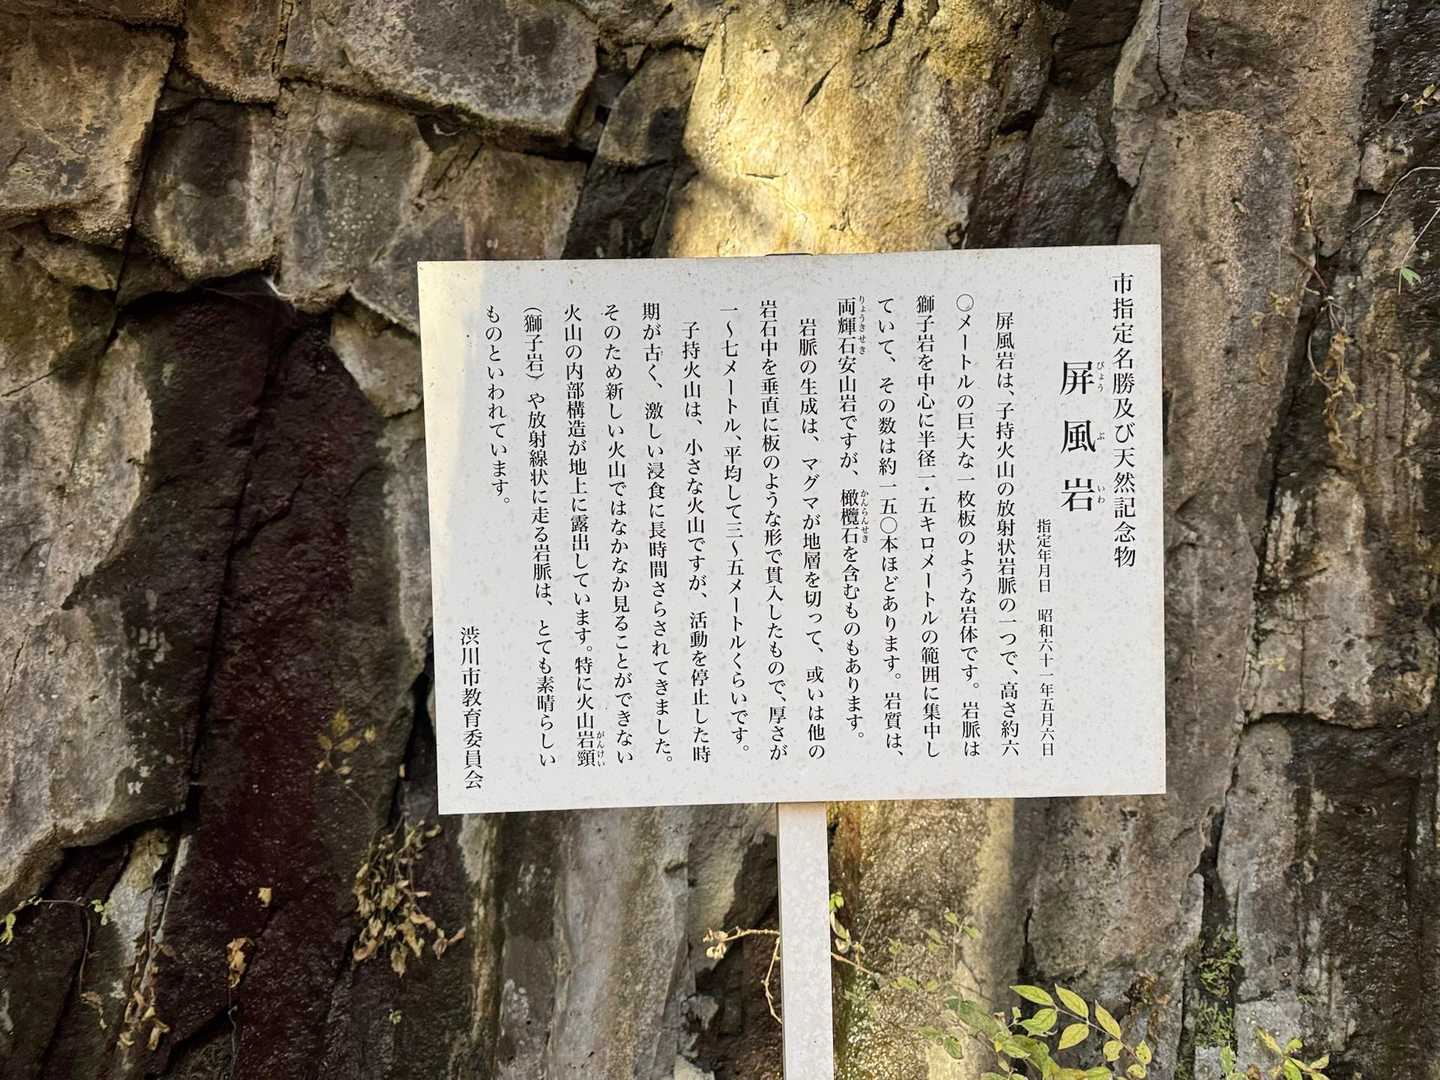 市指定名勝及び天然記念物
屏風岩
びょうぶいわ
指定年月日　昭和六十一年五月六日
屏風岩は、子持火山の放射状岩脈の一つで、高さ約六
〇メートルの巨大な一枚板のような岩体です。岩脈は
獅子岩を中心に半径一・五キロメートルの範囲に集中し
ていて、その数は約一五〇本ほどあります。岩質は、
両輝石安山岩ですが、橄欖石を含むものもあります。
りょうきせき
かんらんせき
岩脈の生成は、マグマが地層を切って、或いは他の
岩石中を垂直に板のような形で貫入したもので、厚さが
一〜七メートル、平均して三〜五メートルくらいです。
子持火山は、小さな火山ですが、活動を停止した時
期が古く、激しい浸食に長時間さらされてきました。
そのため新しい火山ではなかなか見ることができない
火山の内部構造が地上に露出しています。特に火山岩頸
がんけい
（獅子岩）や放射線状に走る岩脈は、とても素晴らしい
ものといわれています。
渋川市教育委員会